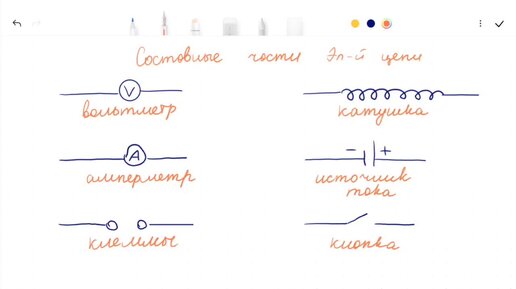 Составные части Эл-й цепи
V
вольтметр
катушка
A
амперметр
- +
источник
тока
клеммы
кнопка